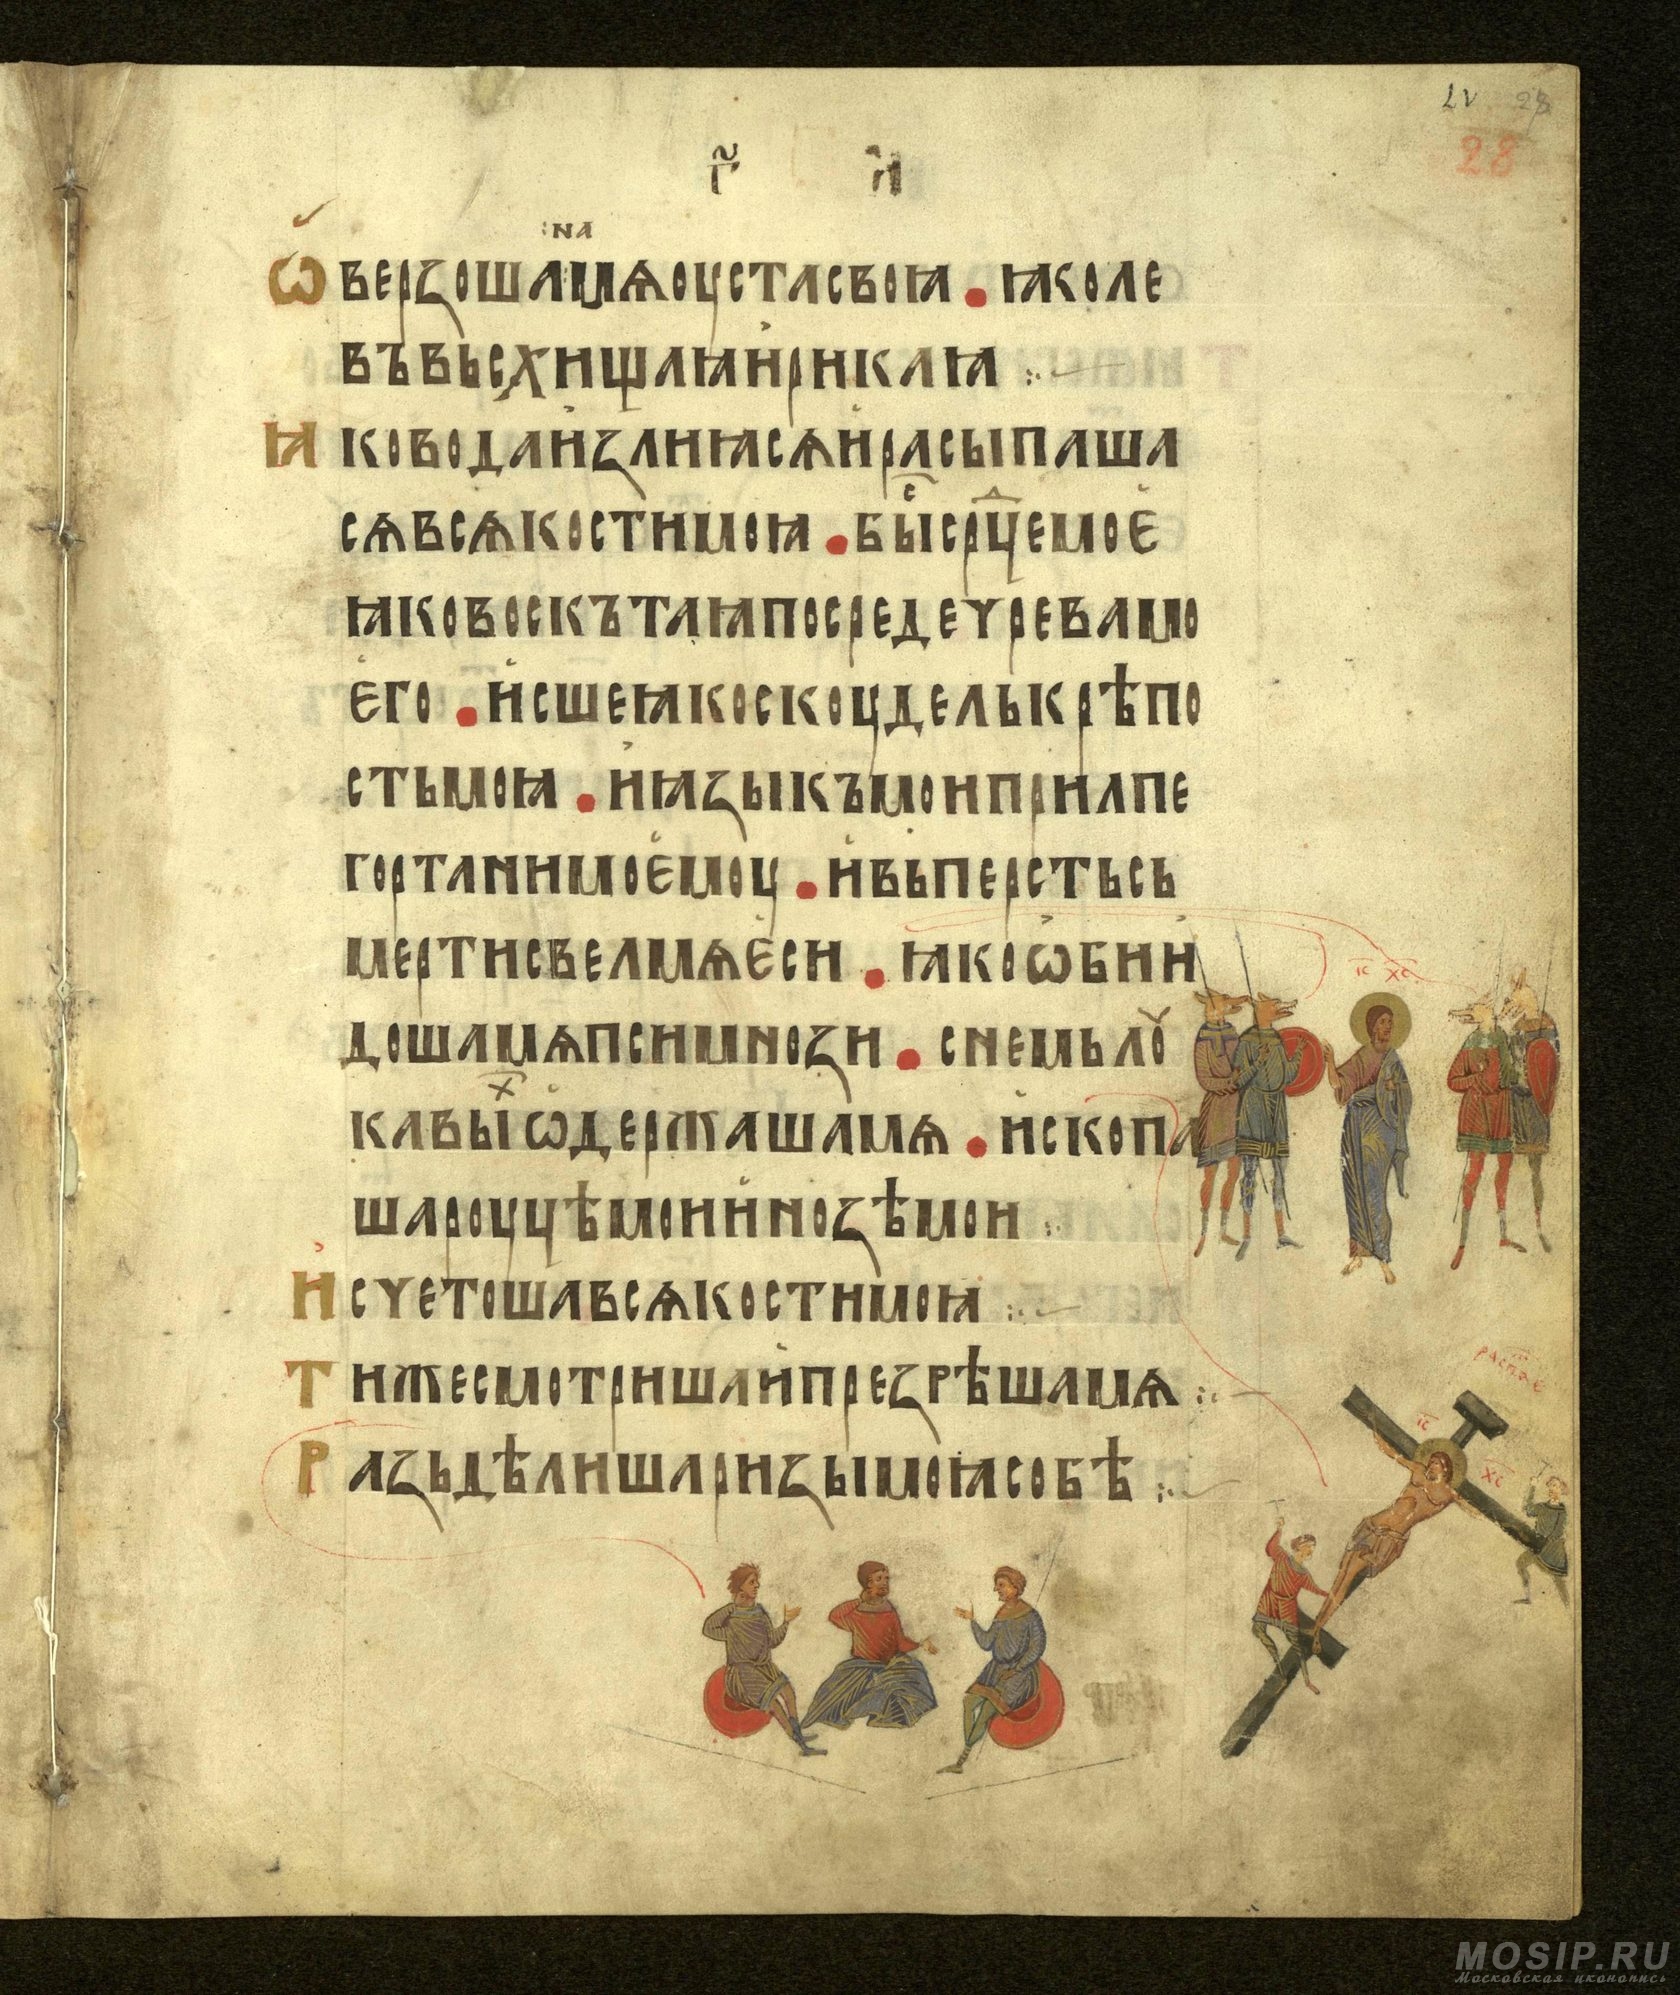 LV 28
28
г҃ и
:на
Ѿверзошамѧоцстасвоꙗ • ꙗколе
въвьсхищаꙗирикаꙗ :
Ꙗководаизлиꙗсѧирасыпаша
сѧвсѧкостимоꙗ • бысⷭ҇рⷣцемоє
ꙗковоскътаꙗпосредеүревамо
єго • исшеꙗкоскоцдельκрѣпо
стьмоꙗ • иꙗзыкъмоиприлпе
гортанимоємоц • ивьперстьсь
мертисвелмѧєси • ꙗкоѡбии
дошамѧпсимнози • снемьлоу
кавыⷯѡдержашамѧ • ископа
шароццѣмоиинозѣмои :
Исүетошавсѧкостимоꙗ :
Тижесмотришаипрезрѣшамѧ :
Разьдѣлишаризымоꙗсобѣ :
іс хс
распѧ
іс
хс
MOSIP.RU
Московская иконопись